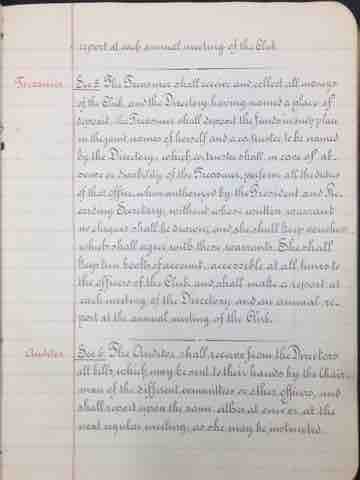 report at each annual meeting of the Club.
Treasurer Sec 5. The Treasurer shall receive and collect all moneys
of the Club, and the Directory having named a place of
deposit, the Treasurer shall deposit the funds in any place
in the joint names of herself and a co-trustee to be named
by the Directory, which co-trustee shall in case of ab-
sence or disability of the Treasurer, perform all the duties
of that office, when authorized by the President and Re-
cording Secretary, without whose written warrant
no cheques shall be drawn, and she shall keep vouchers
which shall agree with these warrants. She shall
keep books of account, accessible at all times to
the officers of the Club, and shall make a report at
each meeting of the Directory and an annual re-
port at the annual meeting of the Club.
Auditor Sec 6. The Auditor, shall receive from the Directors
all bills which may be sent to their hands by the Chair-
man of the different committees or other officers, and
shall report upon the same either at once or at the
next regular meeting, as she may be instructed.